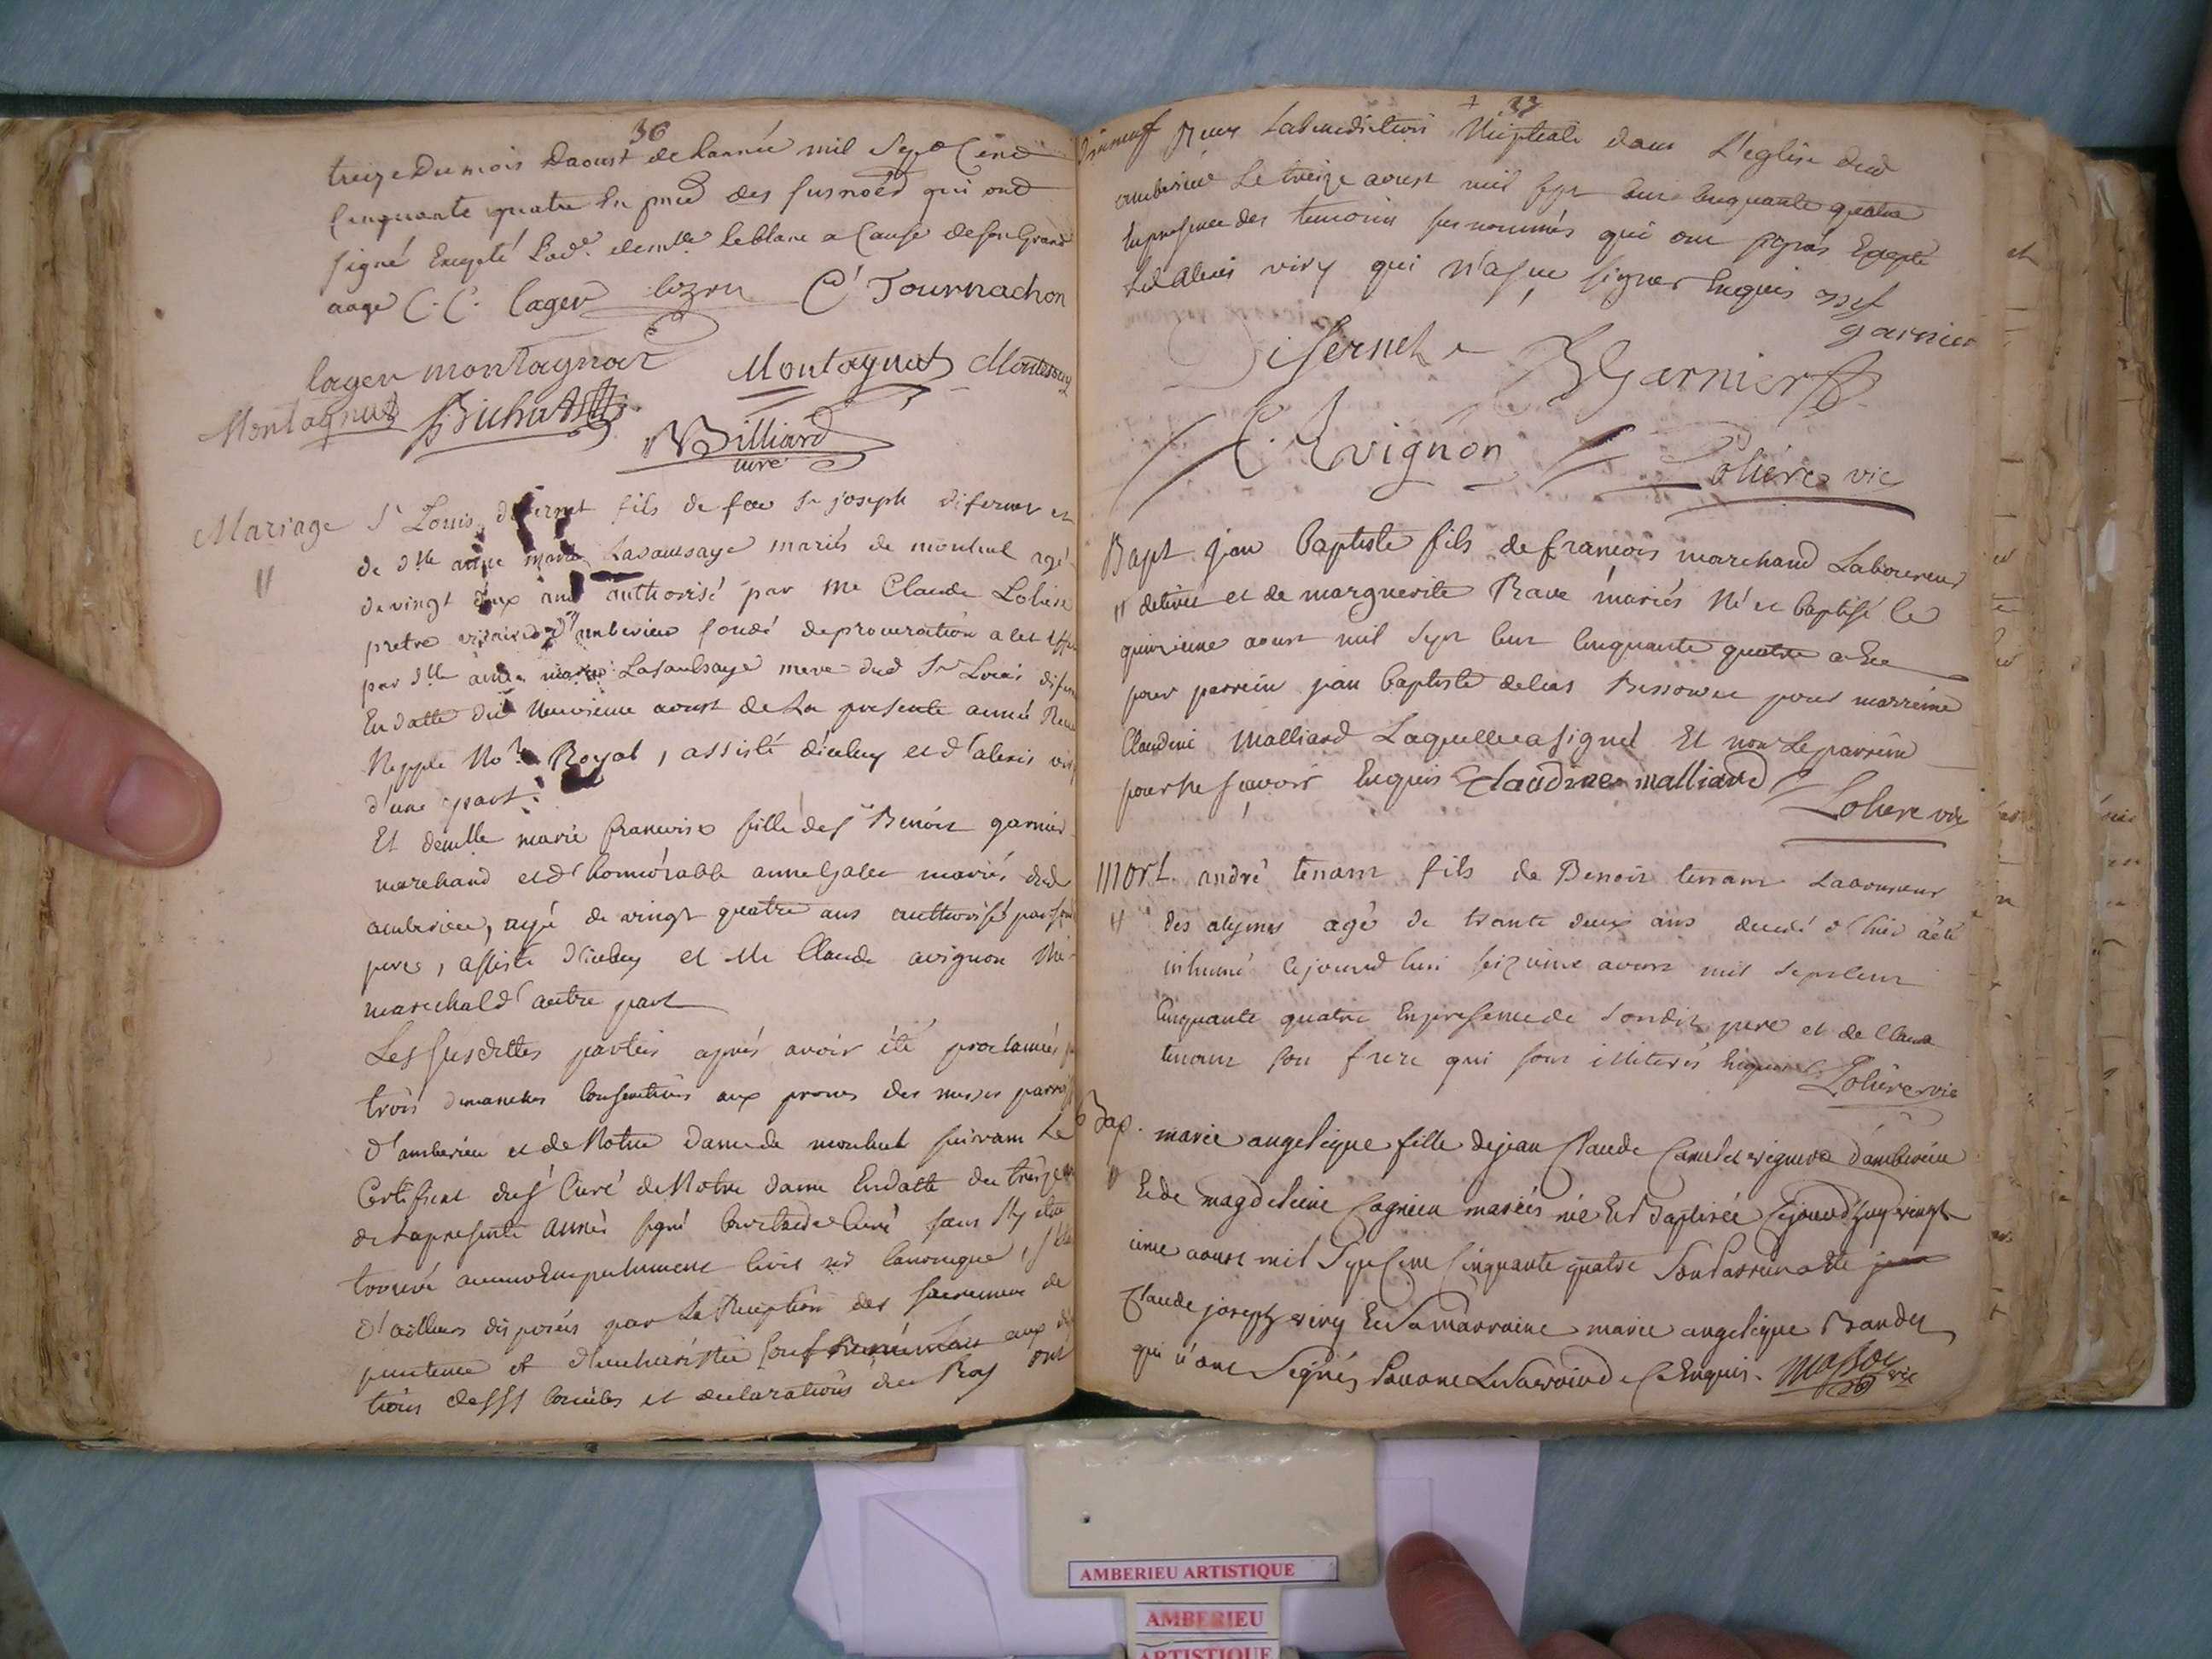 36
treize Du mois Daoust de Lannée mil Sept Cent
Cinquante quatre En pnce des susnoés qui ont
signé Excepté lad.e demlle leblanc a Cause de son Grand
aage C. C. Cager cozon C' Tournachon
Cager montagnat Montagnat
Montagnat Bichat
Billiard
curé
Mariage Sr Louis difernet fils de feu Sr joseph difernet et
de dlle anne marie Lasaulsaye mariés de montluel agé
de vingt deux ans authorisé par Me Claude Loliere
pretre vicaire d'amberieu fondé de procuration a cet effet
par dlle anne marie Lasaulsaye mere dud Sr Louis
En datte du Neuvieme aoust de La presente année
Royal, assisté d'iceluy et d'alexis
d'une part
Et demlle marie francoise fille de sr Benoit garnier
marchand et d'honnorable anne mariés dud
amberieu, agé de vingt quatre ans authorisé par son
pere, assisté d'iceluy et Me Claude avignon
marechal d'autre part
Les susdittes parties aprés avoir été proclamées
trois dimanches consecutives aux prones des messes
d'amberieu et de Notre Dame de montluel suivant Le
Certificat du sr Curé de Notre dame En datte du treize
de La presente année signé curé sans s'y etre
trouvé aucun Empechement civil ni canonique,
d'ailleurs disposés par La Reception des sacrements de
penitence et d'eucharistie aux
et declarations du Roy ont
37
Reçu La benediction Nuptiale dans L'eglise dud
amberieu Le treize aoust mil sept cent cinquante quatre
En presence des temoins susnommés qui ont signés Excepté
Led alexis viry qui n'a sçu signer Enquis
garnier
Difernet BGarnier
C. Avignon Loliere vic
Bapt jean Baptiste fils de francois marchand Laboureur
et de marguerite Rave mariés Né et baptisé le
quinzieme aoust mil sept cent cinquante quatre a Eu
pour parrein jean baptiste pour marreine
Claudine Malliard Laquelle a signé Et non Le parrein
pour ne sçavoir Enquis Claudine malliard
Loliere vic
Mort andré tenant fils de Benoit tenant Laboureur
des alymes agé de trante deux ans decedé d'hier a été
inhumé cejourd'hui seizieme aoust mil sept cent
cinquante quatre En presence de son dit pere et de Claude
tenant son frere qui sont illiterés Enquis Loliere vic
Bap. marie angelique fille de jean Claude vigneron d'amberieu
Et de magdeleine Cagnieu mariés née Et Baptisée Cejourd'huy vingt
ieme aoust mil Sept Cent Cinquante quatre Son Parrein a été
Claude joseph viry Et Sa marraine marie angelique
qui n'ont Signés Enquis. vic
AMBERIEU ARTISTIQUE
AMBERIEU
ARTISTIQUE